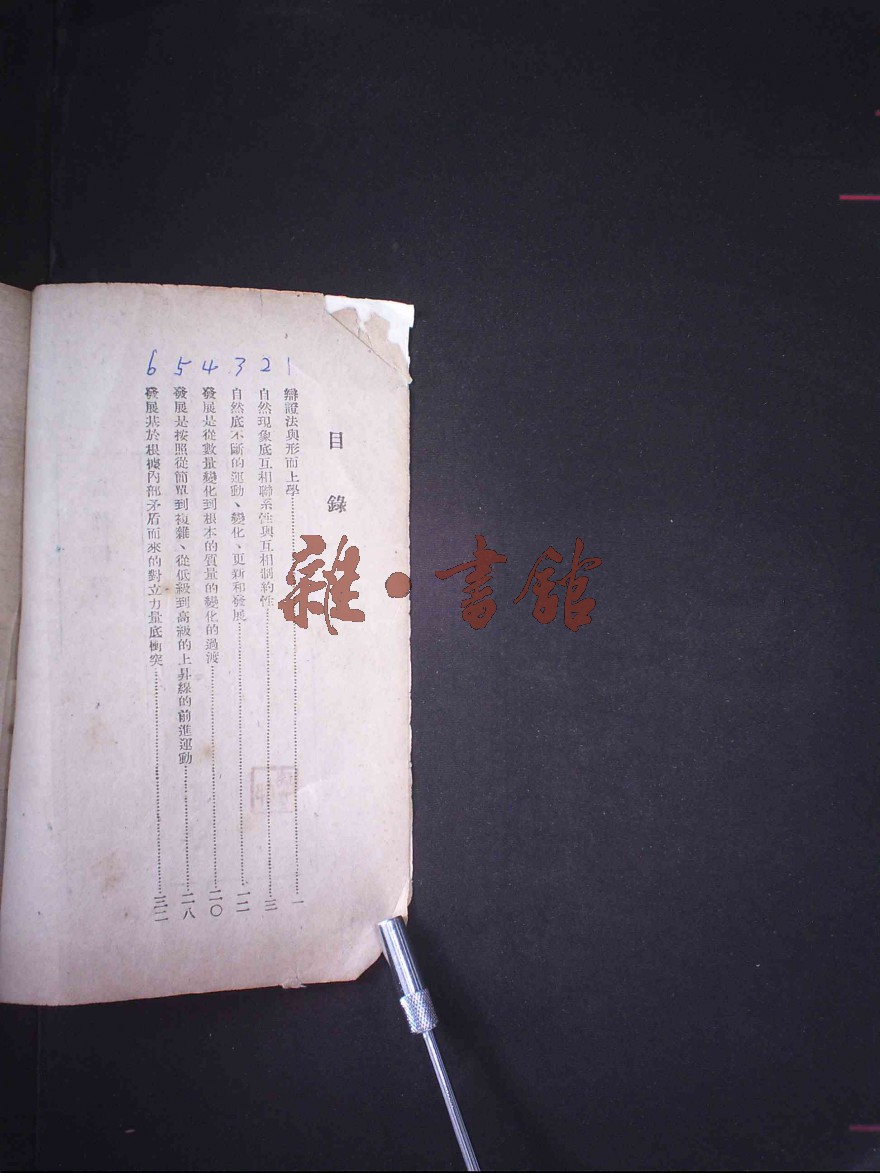 目錄
1 辯證法與形而上學……一
2 自然現象底互相聯系性與互相制約性……三
3 自然底不斷的運動、變化、更新和發展……一二
4 發展是從數量變化到根本的質量的變化的過渡……二〇
5 發展是按照從簡單到複雜、從低級到高級的上昇綫的前進運動……二八
6 發展基於根據內部矛盾而來的對立力量底衝突……三二
雜·書館